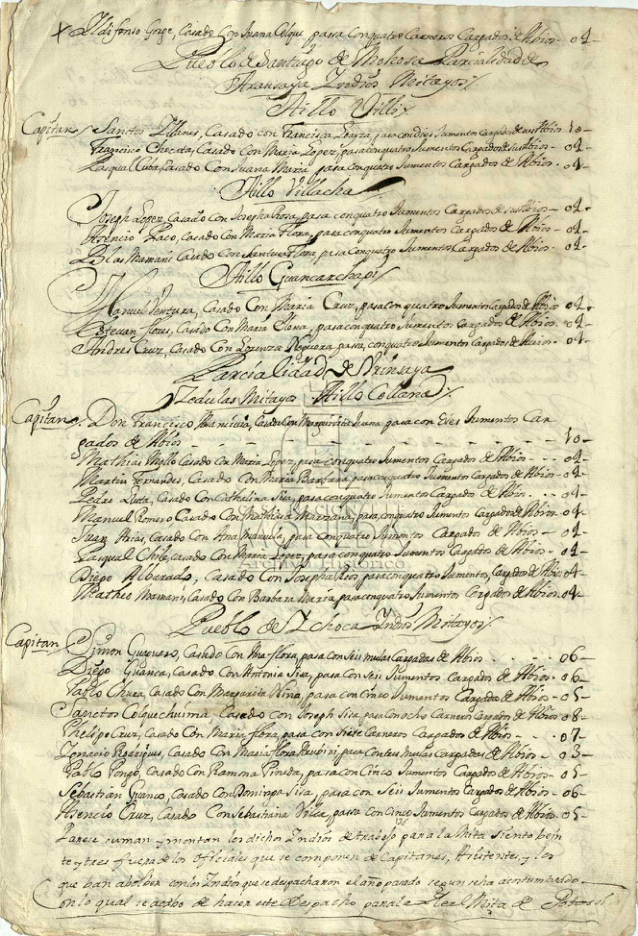 Ildifonso Gorge, Casado Con Juana Colque, passa Conquatro Carneros Cargados de Abios - 04 -
Pueblo de Santiago de Mohosa Parcialidad de
Aransaya Indios Mitayos
Aillo Villi
Capitan Sanctos Llanos, Casado con Francisca, passa con dies Jumentos Cargados de sus Abios 10 -
Francisco Checata, Casado Con Maria Lopez, passa conquatro Jumentos Cargados de sus Abios - 04 -
Pasqual Cuba, Casado Con Juana Maria, passa conquatro Jumentos Cargados de Abios - 04 -
Aillo Villacha
Joseph Lopez, Casado con Josepha Rosa, passa conquatro Jumentos Cargados de sus Abios - 04 -
Asencio Paco, Casado Con Maria Flora, passa conquatro Jumentos Cargados de Abios - 04 -
Blas Mamani Casado Con Santusa Flora, passa Conquatro Jumentos Cargados de Abios - 04 -
Aillo Guancarchapi
Manuel Ventura, Casado Con Maria Cruz, passa con quatro Jumentos Cargados de Abios 04 -
Estevan Flores, Casado Con Maria Elena, passa conquatro Jumentos Cargados de Abios - 04 -
Andres Cruz, Casado Con Lorenza Noguera passa, conquatro Jumentos Cargados de Abios - 04 -
Parcialidad de Urinsaya
Zedulas Mitayos Aillo Collana
Capitan Don Francisco, Casado Con Margarita Juana passa con Dies Jumentos Car
gados de Abios - 10 -
Mathias Casado Con Maria Lopez, passa conquatro Jumentos Cargados de Abios - 04 -
Martin Fernandes, Casado Con Maria Barbara, passa conquatro Jumentos Cargados de Abios - 04 -
Pedro, Casado Con Cathalina Sisa, passa conquatro Jumentos Cargados de Abios - 04 -
Manuel Romero Casado Con Mariana, passa conquatro Jumentos Cargados de Abios - 04 -
Juan Arias, Casado con Ana Manuela, passa Conquatro Jumentos Cargados de Abios - 04 -
Pasqual Chile, casado Con Maria Lopez, passa conquatro Jumentos Cargados de Abios - 04 -
Diego Albarado, Casado Con Josepha Rosas, passa conquatro Jumentos, Cargados de Abios 04 -
Matheo Mamani, Casado Con Barbara Maria, passa conquatro Jumentos Cargados de Abios 04 -
Archivo Histórico
Pueblo de Ychoca Indios Mitayos
Capitan Simon Guaguero, Casado Con Ma. flora, passa con Seis mulas Cargadas de Abios 06 -
Diego Guanca, Casado Con Antonia Sisa, passa con Seis Jumentos Cargados de Abios - 06 -
Pablo Chura, Casado Con Margarita Niña, passa con Cinco Jumentos Cargados de Abios - 05 -
Sanctos Colquechuima, Casado con Joseph Sisa, passa Con ocho Carneros Cargados de Abios - 08 -
Phelipe Cruz, Casado Con Maria flora, passa con Siete Carneros Cargados de Abios - 07 -
Ignacio Rodrigues, Casado Con Maria Flora, passa Con tres mulas Cargadas de Abios - 03 -
Pablo Pongo, Casado Con Ramona Pineda, passa con Cinco Jumentos Cargados de Abios - 05 -
Sebastian Guanco, Casado Con Dominga Sisa, passa con Seis Jumentos Cargados de Abios - 06 -
Asencio Cruz, Casado Con Sebastiana, passa con Cinco Jumentos Cargados de Abios - 05 -
Parese suman y montan los dichos Indios de trabajo para la Mita siento bein
te y tres fuera de los Officiales que se componen de Capitanes, Asistentes, y los
que han abolber con los Indios que se despacharon el año pasado segun se ha acostumbrado
Con lo qual se acabo de haser este Despacho para la Real Mita de Potosi